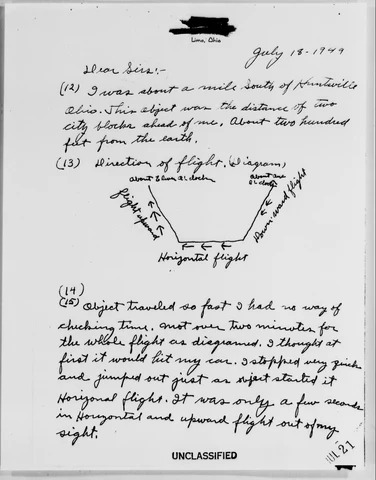 Lima, Ohio
July 18-1949
Dear Sirs:-
(12) I was about a mile South of Huntsville
Ohio. This object was the distance of two
city blocks ahead of me. About two hundred
feet from the earth.
(13) Direction of flight. (Diagram)
about o'clock
about one o'clock
flight upward
Down-ward flight
Horizontal flight
(14)
(15) Object traveled so fast I had no way of
checking time. Not over two minutes for
the whole flight as diagramed. I thought at
first it would hit my car. I stopped very quick
and jumped out just as object started it
Horizonal flight. It was only a few seconds
in Horizontal and upward flight out of my
sight.
UNCLASSIFIED
JUL 21